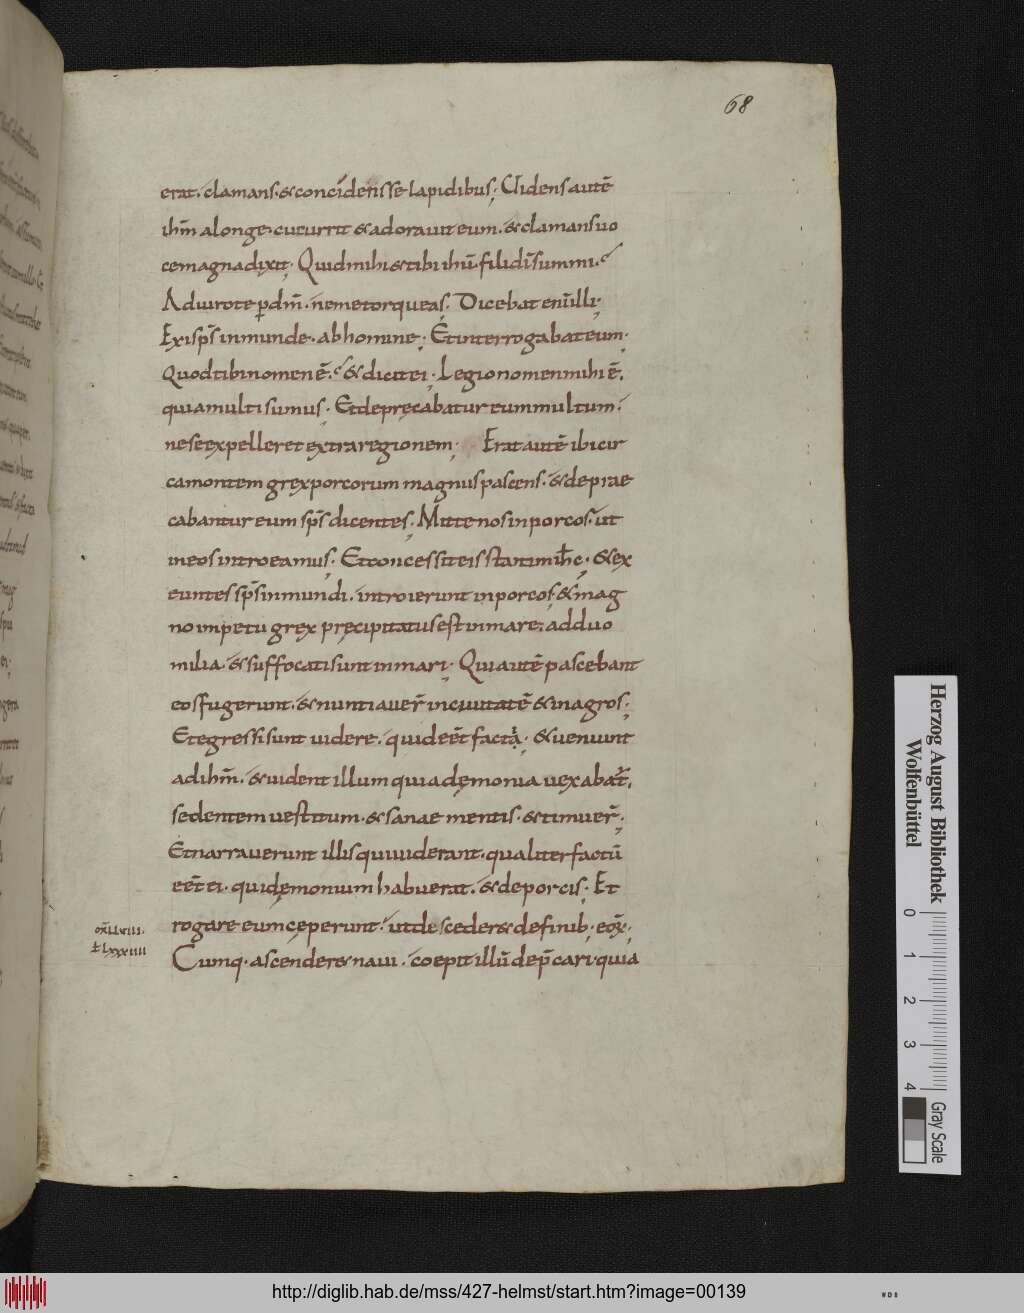 68
erat. clamans. & concidens se lapidibus; Uidens autē
ihm̄ a longe. cucurrit & adorauit eum. & clamans uo
ce magna dixit; Quid mihi & tibi ihū. fili dī summi.
Adiuro te ꝑ dm̄. ne me torqueas; Dicebat enī illi;
Exi sps̄ inmunde. ab homine; Et interrogabat eum;
Quod tibi nomen ē. & dicit ei; Legio nomen mihi ē.
quia multi sumus; Et depręcabatur eum multum.
ne se expelleret extra regionem; Erat autē ibi cir
ca montem grex porcorum magnus pascens. & deprae
cabantur eum sps̄ dicentes; Mitte nos in porcos. ut
in eos introeamus; Et concessit eis statim ih̄c; & ex
euntes sps̄ inmundi. introierunt in porcos; & mag
no impetu grex pręcipitatus est in mare. ad duo
milia. & suffocati sunt in mari; Qui autē pascebant
eos fugerunt. & nuntiauer̄ in ciuitatē & in agros;
Et egressi sunt uidere. quid eēt factū; & ueniunt
ad ihm̄. & uident illum qui a dęmonia uexabat̄.
sedentem uestitum. & sanae mentis. & timuer̄;
Et narrauerunt illis qui uiderant. qualiter factū
eēt ei. qui dęmonium habuerat. & de porcis; Et
rogare eum cęperunt. ut desceder& de finib; eoꝝ;
Cumq; ascender& naui. coepit illū dep̄cari. quia
ł lxxxiiii
Herzog August Bibliothek
Wolfenbüttel
0 1 2 3 4
Gray Scale
http://diglib.hab.de/mss/427-helmst/start.htm?image=00139